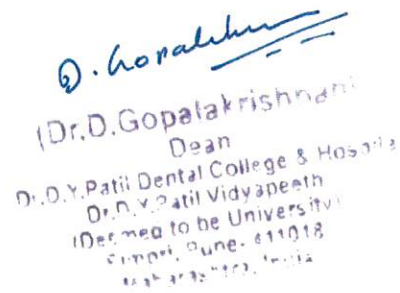 D. Gopalakr
(Dr.D.Gopalakrishnan)
Dean
Dr.D.Y.Patil Dental College & Hospital
Dr.D.Y.Patil Vidyapeeth
(Deemed to be University)
Pimpri, Pune- 411018
Maharashtra, India